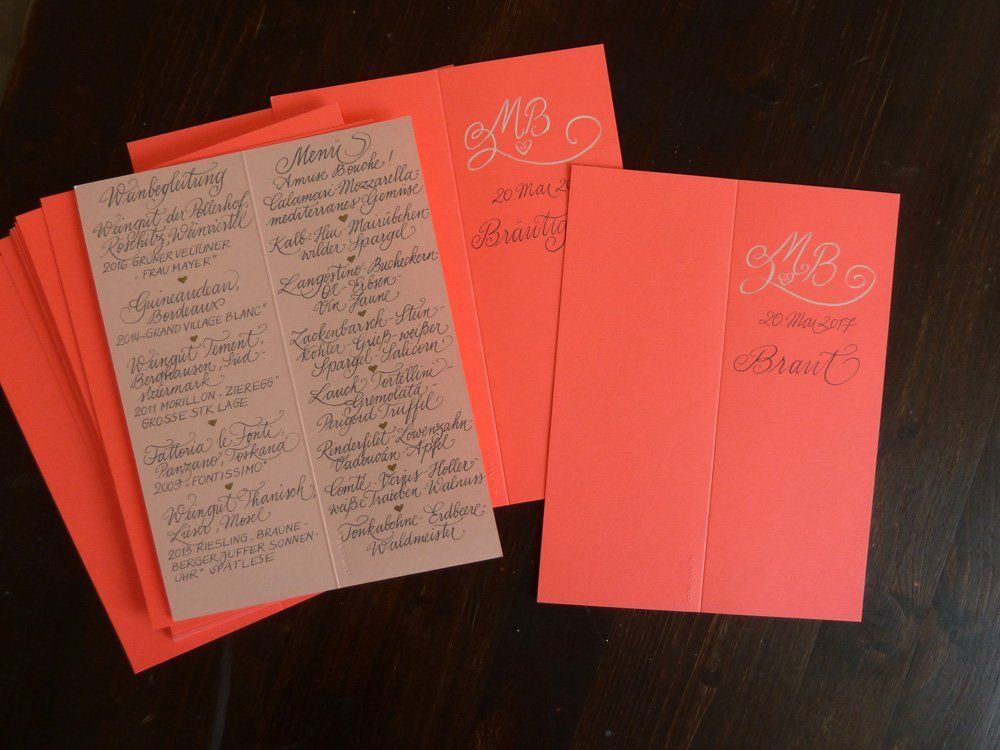 Weinbegleitung
Weingut der Pollerhof,
Röschitz, Weinviertel
2016 GRÜNER VELTLINER
"FRAU MAYER"
Guineaudeau,
Bordeaux
2014 "GRAND VILLAGE BLANC"
Weingut Tement,
Berghausen, Süd-
steiermark
2011 MORILLON · ZIEREGG"
GROSSE STK LAGE
Fattoria le Fonti,
Panzano, Toskana
2009 "FONTISSIMO"
Weingut Thanisch,
Lieser, Mosel
2013 RIESLING "BRAUNE-
BERGER JUFFER SONNEN-
UHR" SPÄTLESE
Menü
Amuse Bouche!
Calamari Mozzarella-
mediterranes Gemüse
Kalb-Heu-Mairübchen-
wilder Spargel
Langostino-Bucheckern-
Öl-Erbsen-
Vin Jaune
Zackenbarsch-Stein-
köhler-Grieß-weißer
Spargel-Salicorn
Lauch Tortellini
Gremolata-
Perigord Trüffel
Rinderfilet-Löwenzahn-
Vadouvan-Apfel
Comté-Verjus-Holler-
weiße Trauben-Walnuss
Tonkabohne-Erdbeere-
Waldmeister
MB
20 Mai 20
Bräutig
MB
20 Mai 2017
Braut